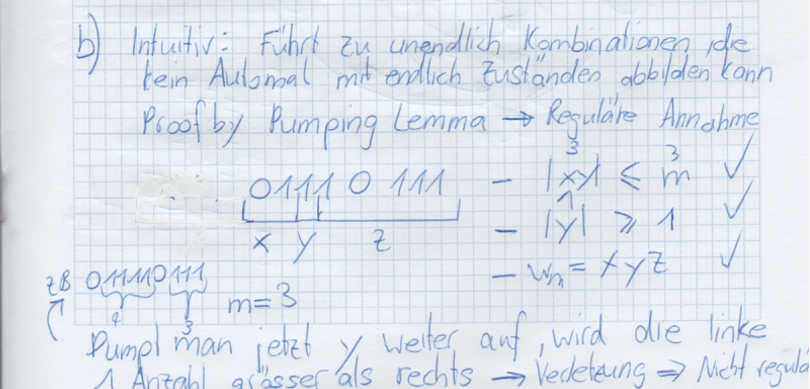 b) Intuitiv: Führt zu unendlich Kombinationen, die
kein Automat mit endlich Zuständen abbilden kann
Proof by Pumping Lemma → Reguläre Annahme
0111 0 111
x y z
- |xy| ≤ m ✓
3 3
- |y| ≥ 1 ✓
1
- wₙ = xyz ✓
zB 011110111
4 3
m=3
Pumpt man jetzt y weiter auf, wird die linke
1 Anzahl grösser als rechts → Verletzung ⇒ Nicht regulä